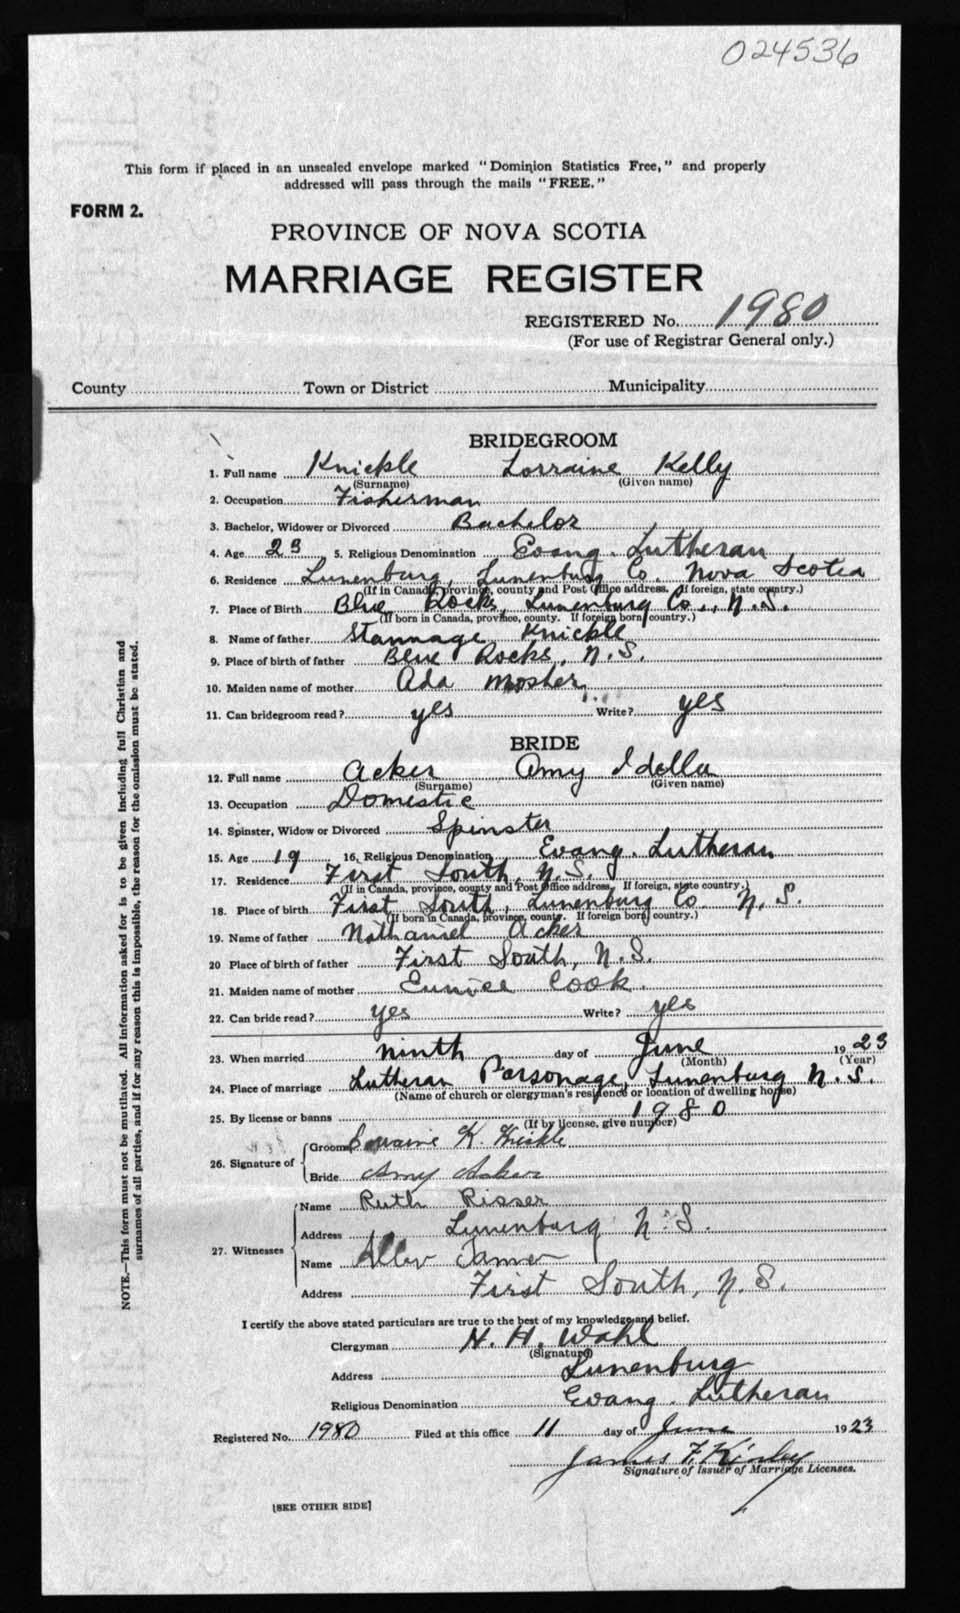 024536
This form if placed in an unsealed envelope marked "Dominion Statistics Free," and properly
addressed will pass through the mails "FREE."
FORM 2.
PROVINCE OF NOVA SCOTIA
MARRIAGE REGISTER
REGISTERED No. 1980
(For use of Registrar General only.)
County Town or District Municipality
BRIDEGROOM
1. Full name Knickle Lorraine Kelly
(Surname) (Given name)
2. Occupation Fisherman
3. Bachelor, Widower or Divorced Bachelor
4. Age 23 5. Religious Denomination Evang. Lutheran
6. Residence Lunenburg, Lunenburg Co. Nova Scotia
(If in Canada, province, county and Post Office address. If foreign, state country.)
7. Place of Birth Blue Rocks, Lunenburg Co., N.S.
(If born in Canada, province, county. If foreign born, country.)
8. Name of father Stannage Knickle
9. Place of birth of father Blue Rocks, N.S.
10. Maiden name of mother Ada Mosher
11. Can bridegroom read? yes Write? yes
BRIDE
12. Full name Acker Amy Idella
(Surname) (Given name)
13. Occupation Domestic
14. Spinster, Widow or Divorced Spinster
15. Age 19 16. Religious Denomination Evang. Lutheran
17. Residence First South, N.S.
(If in Canada, province, county and Post Office address. If foreign, state country.)
18. Place of birth First South, Lunenburg Co. N.S.
(If born in Canada, province, county. If foreign born, country.)
19. Name of father Nathaniel Acker
20 Place of birth of father First South, N.S.
21. Maiden name of mother Eunice Cook.
22. Can bride read? yes Write? yes
23. When married ninth day of June 1923
(Month) (Year)
24. Place of marriage Lutheran Parsonage, Lunenburg N.S.
(Name of church or clergyman's residence or location of dwelling house)
25. By license or banns 1980
(If by license, give number)
26. Signature of Groom Lorraine K. Knickle
Bride Amy Acker
27. Witnesses Name Ruth Risser
Address Lunenburg N.S.
Name Allen Tanner
Address First South, N.S.
I certify the above stated particulars are true to the best of my knowledge and belief.
Clergyman N. H. Wahl
(Signature)
Address Lunenburg
Religious Denomination Evang. Lutheran
Registered No. 1980 Filed at this office 11 day of June 1923
James F. Kinley
Signature of Issuer of Marriage Licenses.
[SEE OTHER SIDE]
NOTE.—This form must not be mutilated. All information asked for is to be given including full Christian and
surnames of all parties, and if for any reason this is impossible, the reason for the omission must be stated.